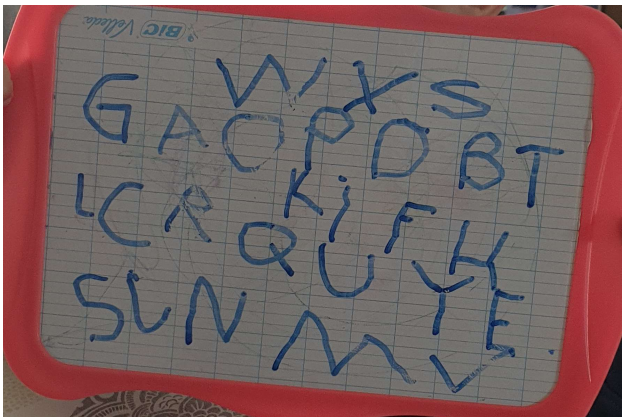 BIC Velleda
W X S
G A O P D B T
L C R K i F
Q U H
S U N M Y E
V